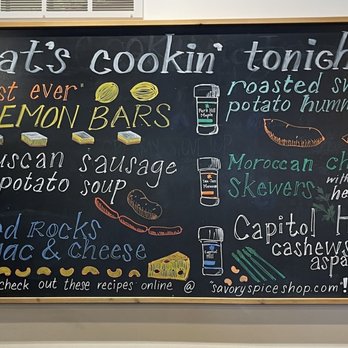 at's cookin' tonigh
st ever
EMON BARS
uscan sausage
potato soup
d Rocks
ac & cheese
check out these recipes online @
roasted sw
potato humm
Park Hill
Maple
Moroccan ch
skewers
with
he
Capitol H
cashews
aspa
savoryspiceshop.com!